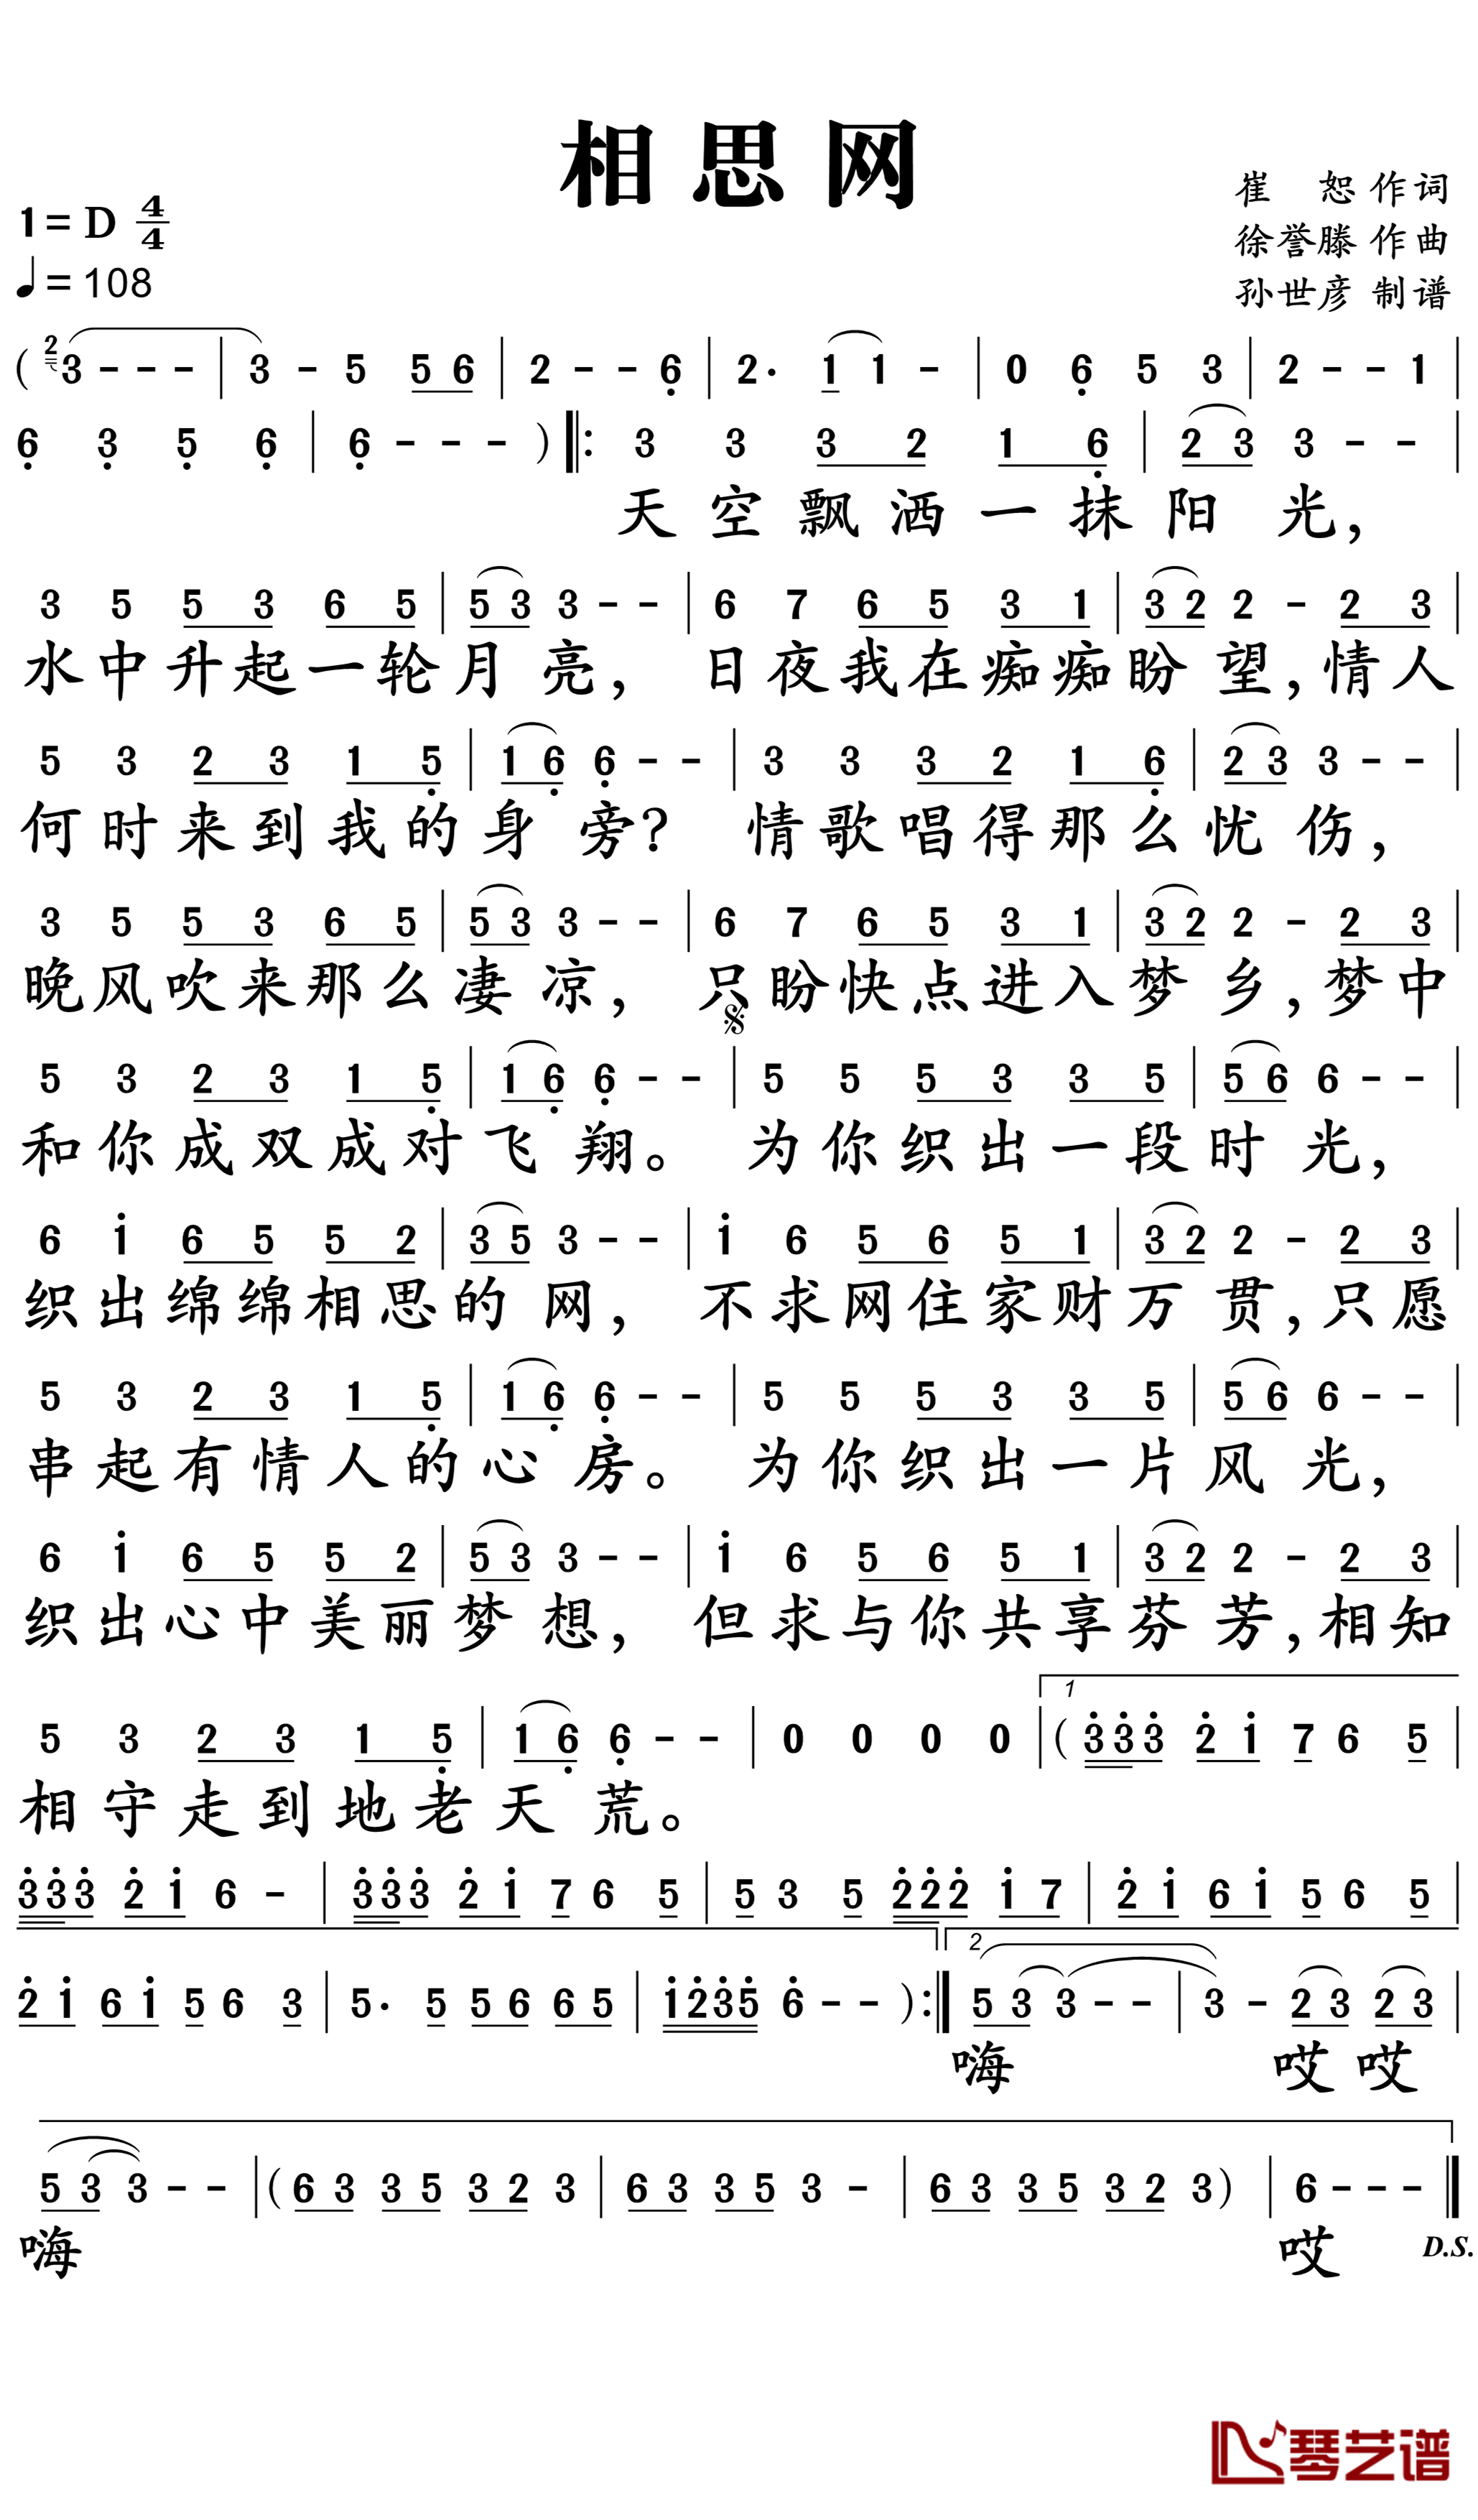 相思网
崔 恕 作 词
徐誉滕 作 曲
孙世彦 制 谱
1= D 4/4
♩= 108
( 2 3 - - - | 3 - 5 5 6 | 2 - - 6̣ | 2· 1 1 - | 0 6̣ 5 3 | 2 - - 1 |
6̣ 3̣ 5̣ 6̣ | 6̣ - - - ) ‖: 3 3 3 2 1 6̣ | 2 3 3 - - |
天空飘洒一抹阳光，
3 5 5 3 6 5 | 5 3 3 - - | 6 7 6 5 3 1 | 3 2 2 - 2 3 |
水中升起一轮月亮， 日夜我在痴痴盼望，情人
5 3 2 3 1 5̣ | 1 6̣ 6̣ - - | 3 3 3 2 1 6̣ | 2 3 3 - - |
何时来到我的身旁？ 情歌唱得那么忧伤，
3 5 5 3 6 5 | 5 3 3 - - | 6 7 6 5 3 1 | 3 2 2 - 2 3 |
晚风吹来那么凄凉， 只盼快点进入梦乡，梦中
𝄋
5 3 2 3 1 5̣ | 1 6̣ 6̣ - - | 5 5 5 3 3 5 | 5 6 6 - - |
和你成双成对飞翔。 为你织出一段时光，
6 1̇ 6 5 5 2 | 3 5 3 - - | 1̇ 6 5 6 5 1 | 3 2 2 - 2 3 |
织出绵绵相思的网， 不求网住家财万贯，只愿
5 3 2 3 1 5̣ | 1 6̣ 6̣ - - | 5 5 5 3 3 5 | 5 6 6 - - |
串起有情人的心房。 为你织出一片风光，
6 1̇ 6 5 5 2 | 5 3 3 - - | 1̇ 6 5 6 5 1 | 3 2 2 - 2 3 |
织出心中美丽梦想， 但求与你共享芬芳，相知
1
5 3 2 3 1 5̣ | 1 6̣ 6̣ - - | 0 0 0 0 | ( 3̇ 3̇ 3̇ 2̇ 1̇ 7 6 5 |
相守走到地老天荒。
3̇ 3̇ 3̇ 2̇ 1̇ 6 - | 3̇ 3̇ 3̇ 2̇ 1̇ 7 6 5 | 5 3 5 2̇ 2̇ 2̇ 1̇ 7 | 2̇ 1̇ 6 1̇ 5 6 5 |
2
2̇ 1̇ 6 1̇ 5 6 3 | 5· 5 5 6 6 5 | 1̇ 2̇ 3̇ 5̇ 6̇ - - ) :‖ 5 3 3 - - | 3 - 2 3 2 3 |
嗨 哎 哎
5 3 3 - - | ( 6 3 3 5 3 2 3 | 6 3 3 5 3 - | 6 3 3 5 3 2 3 ) | 6 - - - ‖
嗨 哎 D.S.
琴艺谱